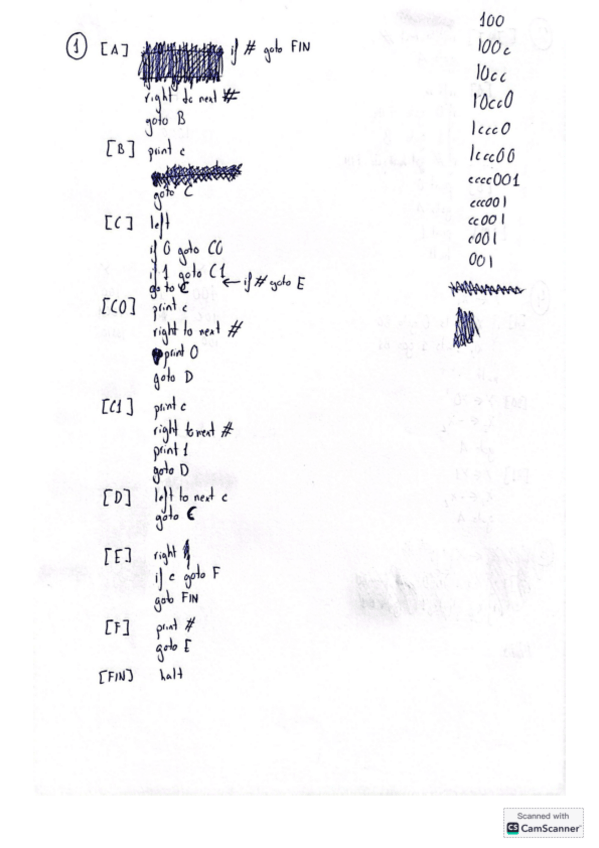 ① [A] if # goto FIN
right to next #
goto B
[B] print c
goto C
[C] left
if 0 goto C0
if 1 goto C1
goto C ← if # goto E
[C0] print c
right to next #
print 0
goto D
[C1] print c
right to next #
print 1
goto D
[D] left to next c
goto C
[E] right
if c goto F
goto FIN
[F] print #
goto E
[FIN] halt
100
100c
10cc
10cc0
1ccc0
1ccc00
cccc001
ccc001
cc001
c001
001
Scanned with
CS CamScanner